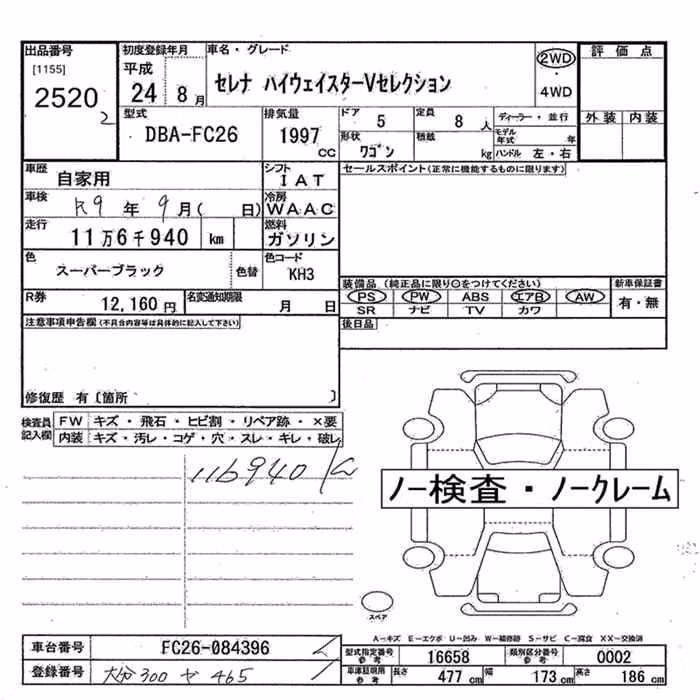 出品番号
[1155]
2520
2
初度登録年月
平成
24 8月
車名・グレード
セレナ ハイウェイスターVセレクション
2WD
・
4WD
評価点
外装 内装
型式
DBA-FC26
排気量
1997
CC
ドア
5
定員
8 人
ディーラー・並行
形状
ワゴン
積載
kg
モデル年式 年
ハンドル 左・右
車歴
自家用
シフト
IAT
セールスポイント(正常に機能するものに限ります)
車検
R9 年 9月( 日)
冷房
WAAC
走行
11万6千940 km
燃料
ガソリン
色
スーパーブラック
色替
色コード
KH3
装備品(純正品に限り○をつけてください)
新車保証書
PS PW ABS エアB AW
SR ナビ TV カワ
有・無
R券
12,160円
名変通知期限
月 日
後日品
注意事項申告欄(不具合内容等は具体的に記入して下さい)
修復歴 有〔箇所 〕
検査員記入欄
FW キズ・飛石・ヒビ割・リペア跡・×要
内装 キズ・汚レ・コゲ・穴・スレ・キレ・破レ
116940
ノー検査・ノークレーム
スペア
A-キズ E-エクボ U-凹み W-補修跡 S-サビ C-腐食 XX-交換済
車台番号
FC26-084396
型式指定番号
参考
16658
類別区分番号
参考
0002
登録番号
大分300 ヤ 465
車庫証明用
参考
長さ 477 cm 幅 173 cm 高さ 186 cm